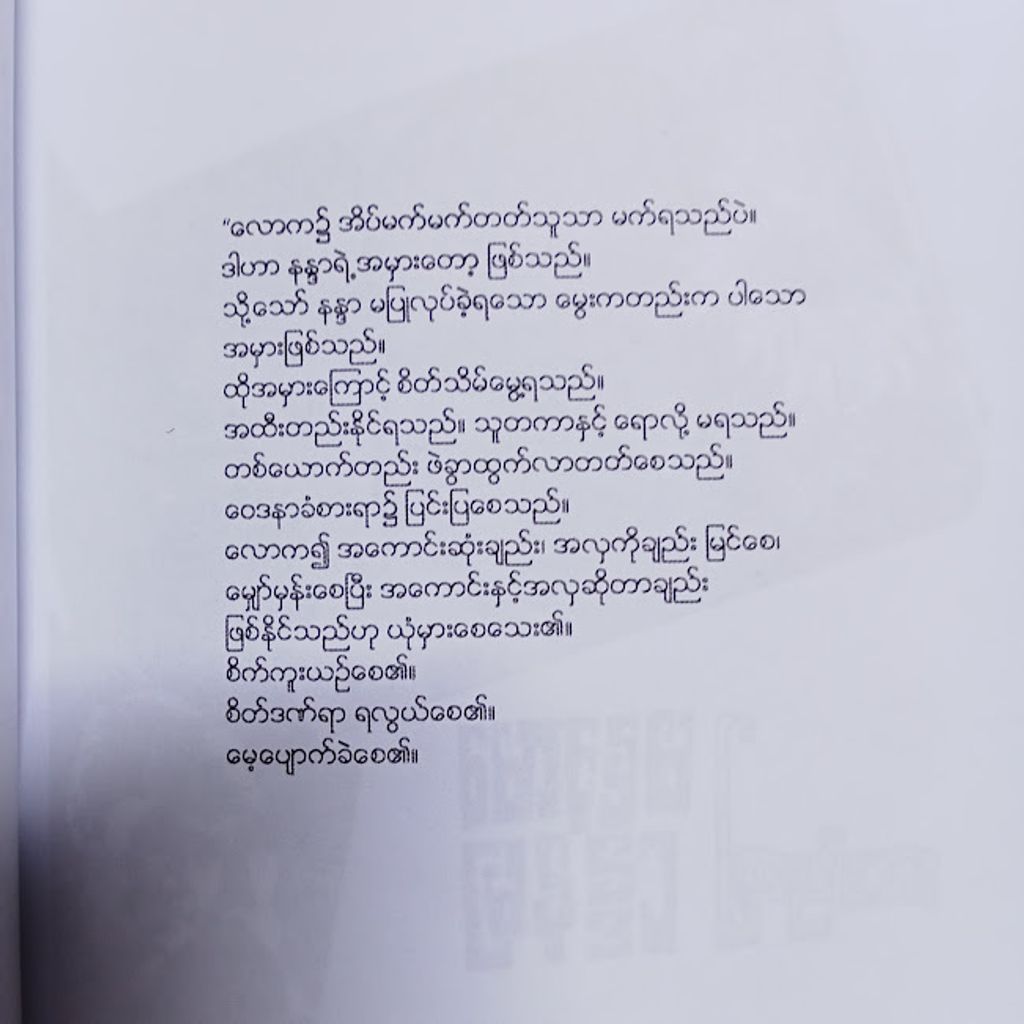 “လောက၌ အိပ်မက်မက်တတ်သူသာ မက်ရသည်ပဲ။
ဒါဟာ နန္ဒာရဲ့အမှားတော့ ဖြစ်သည်။
သို့သော် နန္ဒာ မပြုလုပ်ခဲ့ရသော မွေးကတည်းက ပါသော
အမှားဖြစ်သည်။
ထိုအမှားကြောင့် စိတ်သိမ်မွေ့ရသည်။
အထီးတည်းနိုင်ရသည်။ သူတကာနှင့် ရောလို့ မရသည်။
တစ်ယောက်တည်း ဖဲခွာထွက်လာတတ်စေသည်။
ဝေဒနာခံစားရာ၌ ပြင်းပြစေသည်။
လောက၏ အကောင်းဆုံးချည်း၊ အလှကိုချည်း မြင်စေ၊
မျှော်မှန်းစေပြီး အကောင်းနှင့်အလှဆိုတာချည်း
ဖြစ်နိုင်သည်ဟု ယုံမှားစေသေး၏။
စိက်ကူးယဉ်စေ၏။
စိတ်ဒဏ်ရာ ရလွယ်စေ၏။
မေ့ပျောက်ခဲစေ၏။